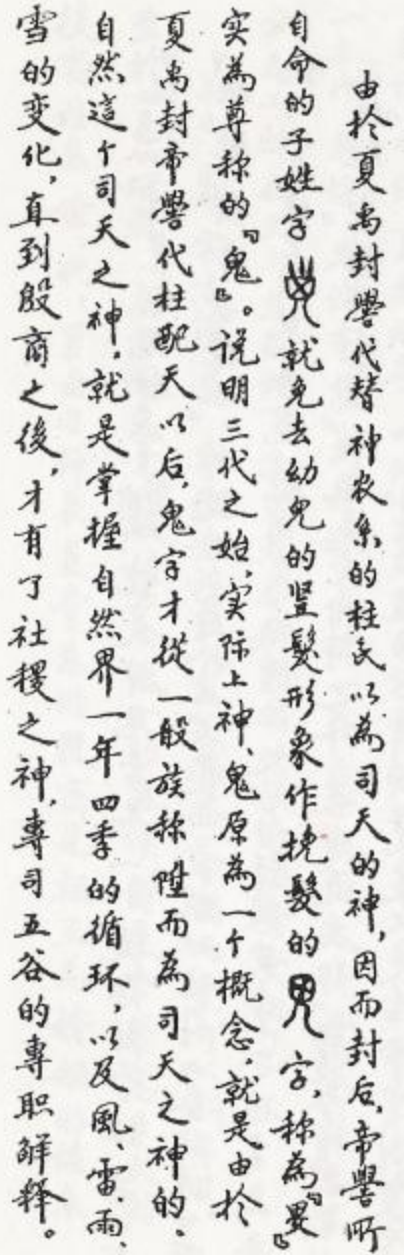 由於夏禹封嚳代替神农系的柱氏以為司天的神，因而封后，帝嚳所
自命的子姓字就免去幼兒的竖髮形象作挽髮的字，称為『畏』
实為尊称的『鬼』。说明三代之始，实际上神、鬼原為一个概念，就是由於
夏禹封帝嚳代柱配天以后，鬼字才從一般族称陞而為司天之神的。
自然這个司天之神，就是掌握自然界一年四季的循环，以及風、雷、雨、
雪的变化，直到殷商之後，才有了社稷之神，專司五谷的專职解释。